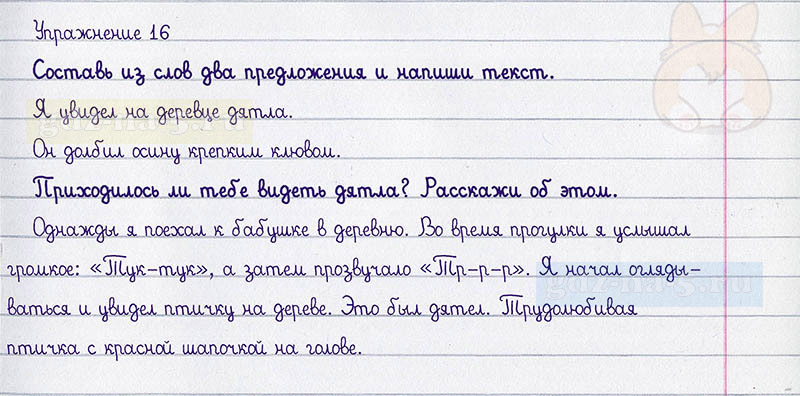 Упражнение 16
Составь из слов два предложения и напиши текст.
Я увидел на деревце дятла.
Он долбил осину крепким клювом.
Приходилось ли тебе видеть дятла? Расскажи об этом.
Однажды я поехал к бабушке в деревню. Во время прогулки я услышал
громкое: «Тук-тук», а затем прозвучало «Тр-р-р». Я начал огляды-
ваться и увидел птичку на дереве. Это был дятел. Трудолюбивая
птичка с красной шапочкой на голове.
gdz-na-5.ru
gdz-na-5.ru